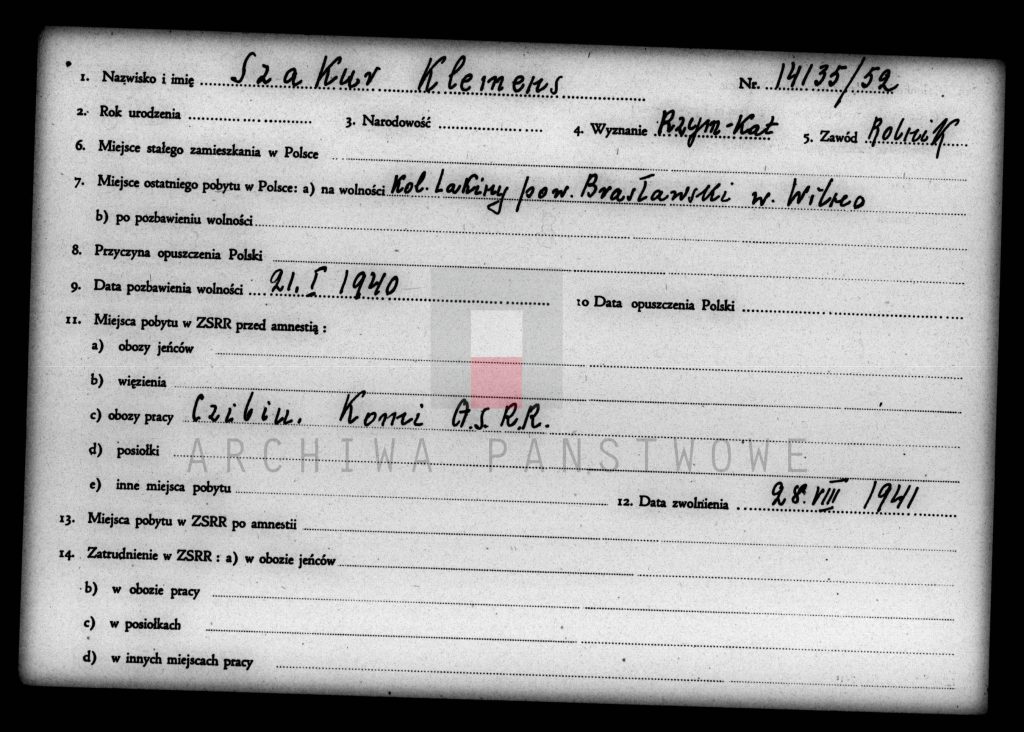 1. Nazwisko i imię Szakur Klemens Nr. 14135/52
2. Rok urodzenia 3. Narodowość 4. Wyznanie Rzym-Kat 5. Zawód Rolnik
6. Miejsce stałego zamieszkania w Polsce
7. Miejsce ostatniego pobytu w Polsce: a) na wolności Kol. Lakiny pow. Brasławski w. Wilno
b) po pozbawieniu wolności
8. Przyczyna opuszczenia Polski
9. Data pozbawienia wolności 21. I 1940 10 Data opuszczenia Polski
11. Miejsca pobytu w ZSRR przed amnestią:
a) obozy jeńców
b) więzienia
c) obozy pracy Czibiu. Komi A.S.R.R.
ARCHIWA PAŃSTWOWE
d) posiołki
e) inne miejsca pobytu 12. Data zwolnienia 28. VIII 1941
13. Miejsca pobytu w ZSRR po amnestii
14. Zatrudnienie w ZSRR: a) w obozie jeńców
b) w obozie pracy
c) w posiołkach
d) w innych miejscach pracy